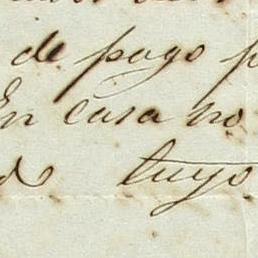 de pago p
En casa no
tuyo